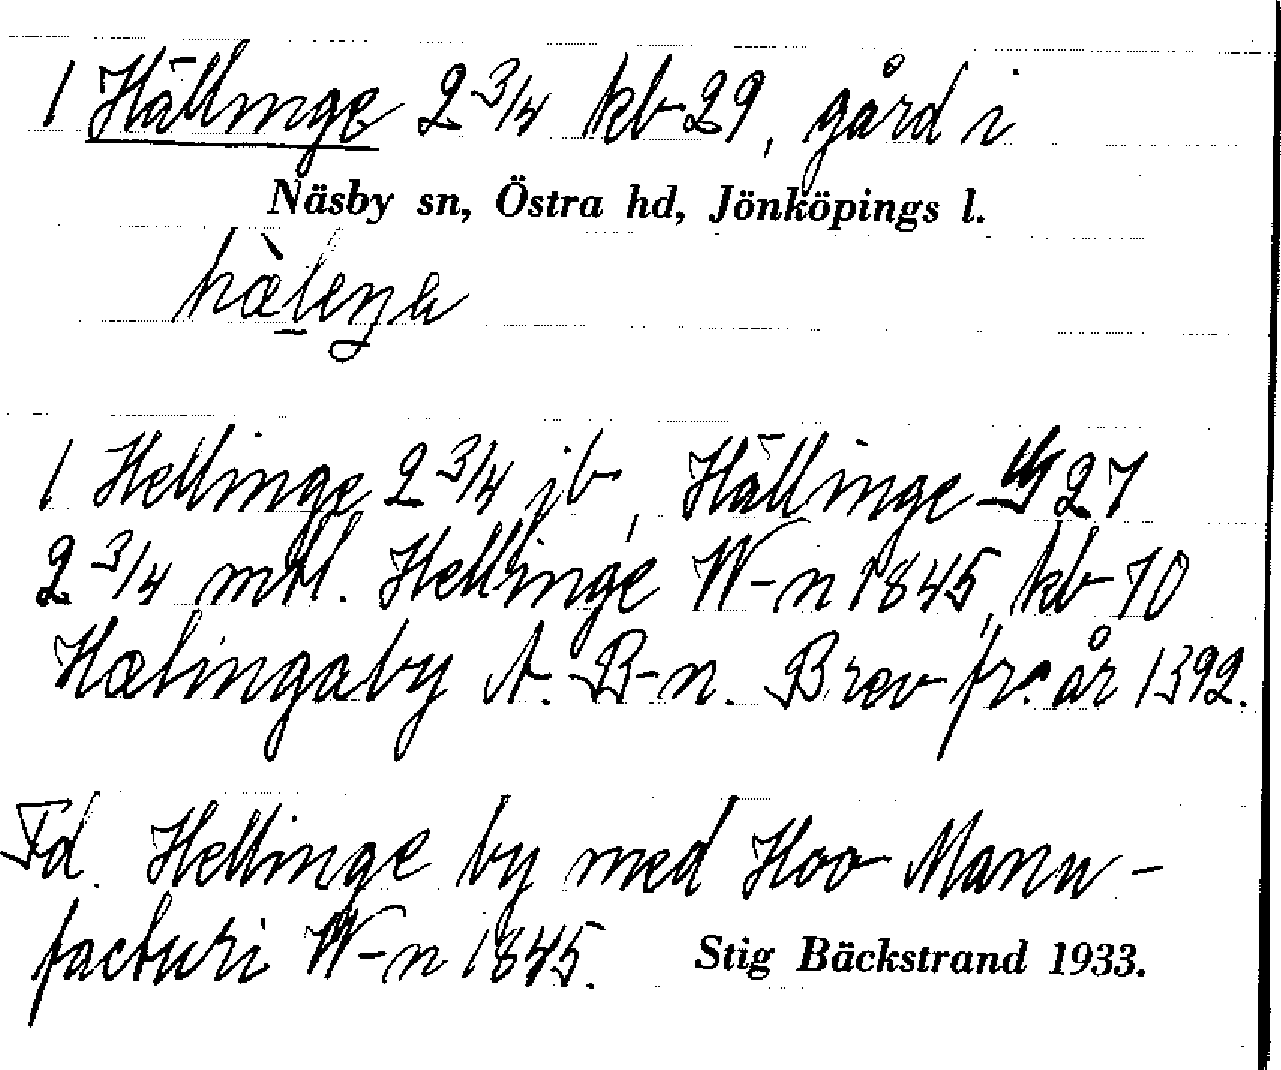 1 Hällinge 2 3/4 kb 29, gård i
Näsby sn, Östra hd, Jönköpings l.
1 Hellinge 2 3/4 jb, Hällinge 27
2 3/4 mtl. Hellinge W-n 1845, kb 10
Hælingaby A. B-n. Brev fr. år 1392.
Fd. Hellinge by med Hoo Manu-
facturi W-n 1845. Stig Bäckstrand 1933.